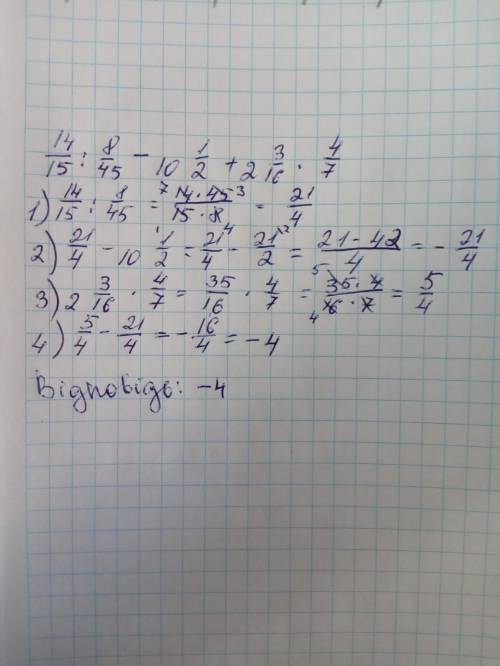 14/15 : 8/45 - 10 1/2 + 2 3/16 · 4/7
1) 14/15 : 8/45 = 7 14·45 3 / 15·8 4 = 21/4
2) 21/4 - 10 1/2 = 21/4 - 21/2 ·2 = 21-42/4 = - 21/4
3) 2 3/16 · 4/7 = 35/16 · 4/7 = 5 35·4 / 4 16·7 = 5/4
4) 5/4 - 21/4 = - 16/4 = -4
Відповідь: -4